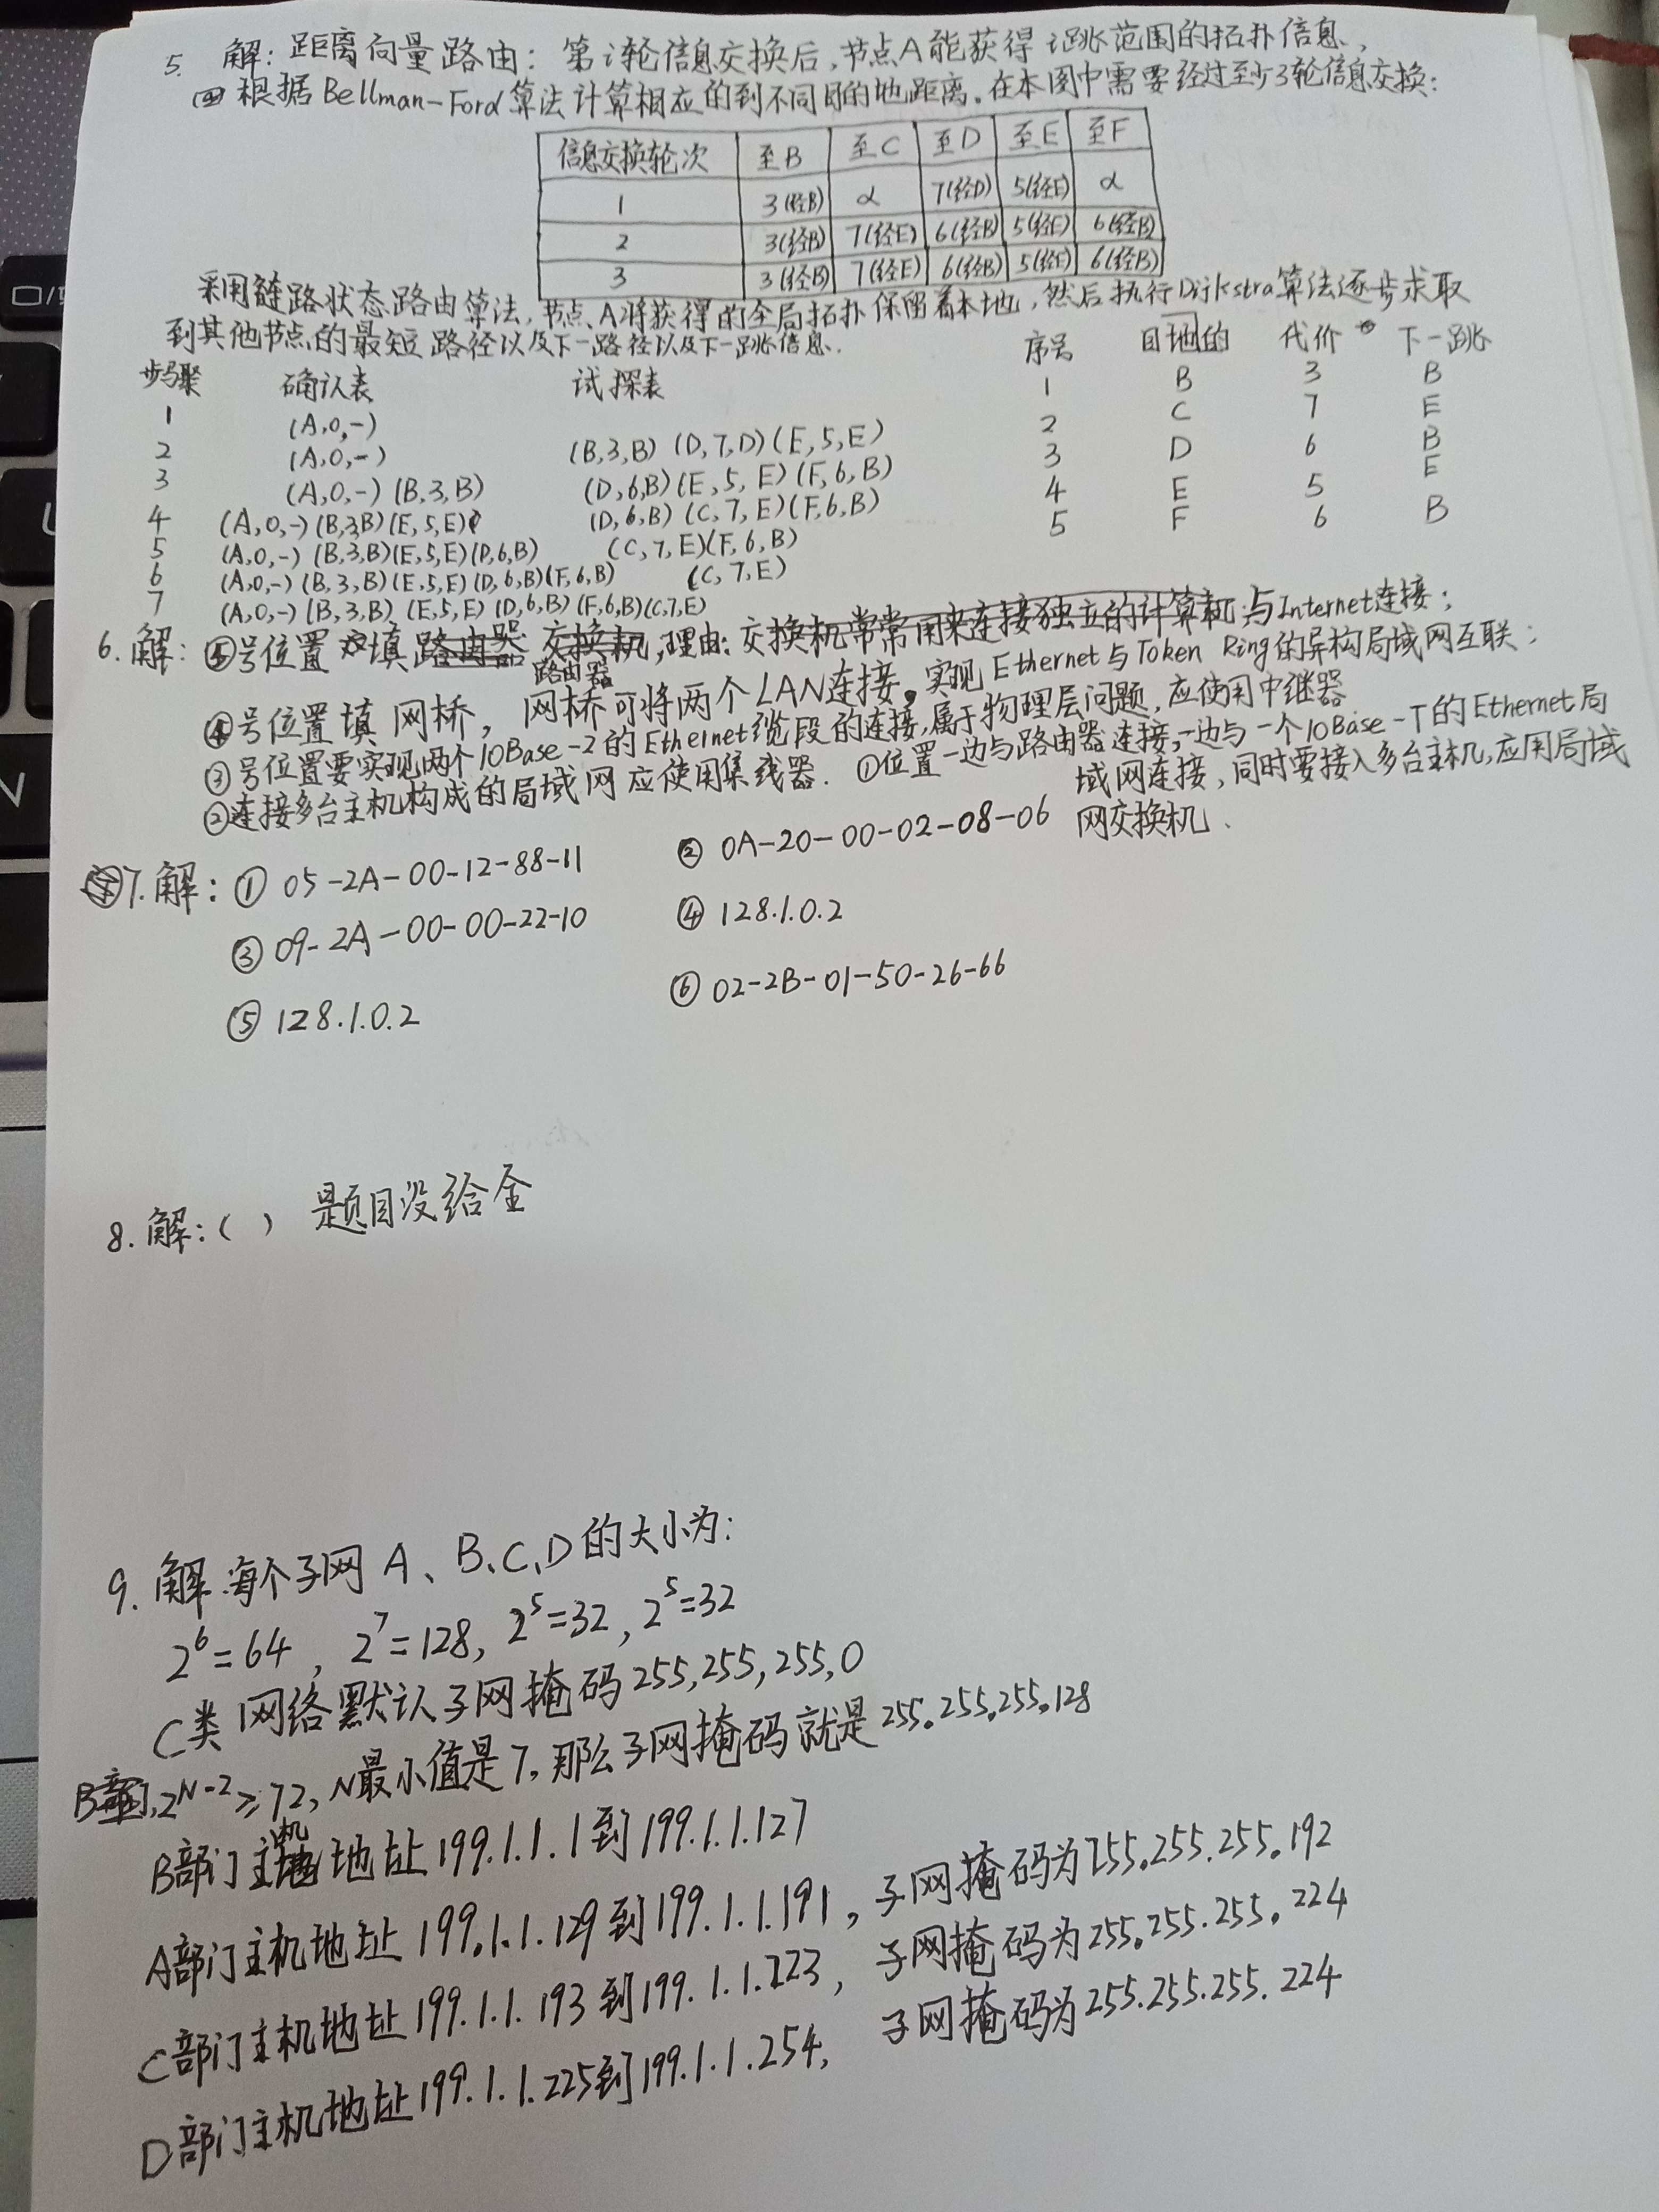 5. 解: 距离向量路由: 第i轮信息交换后,节点A能获得i跳范围的拓扑信息,
根据Bellman-Ford算法计算相应的到不同目的地距离.在本图中需要经过至少3轮信息交换:
信息交换轮次 至B 至C 至D 至E 至F
1 3(经B) α 7(经D) 5(经E) α
2 3(经B) 7(经E) 6(经B) 5(经E) 6(经B)
3 3(经B) 7(经E) 6(经B) 5(经E) 6(经B)
采用链路状态路由算法,节点A将获得的全局拓扑保留着本地,然后执行Dijkstra算法逐步求取
到其他节点的最短路径以及下一路径以及下一跳信息.
步骤 确认表 试探表
1 (A,0,-)
2 (A,0,-) (B,3,B) (D,7,D) (E,5,E)
3 (A,0,-) (B,3,B) (D,6,B) (E,5,E) (F,6,B)
4 (A,0,-) (B,3,B) (E,5,E) (D,6,B) (C,7,E) (F,6,B)
5 (A,0,-) (B,3,B) (E,5,E) (D,6,B) (C,7,E) (F,6,B)
6 (A,0,-) (B,3,B) (E,5,E) (D,6,B) (F,6,B) (C,7,E)
7 (A,0,-) (B,3,B) (E,5,E) (D,6,B) (F,6,B) (C,7,E)
序号 目地的 代价 下一跳
1 B 3 B
2 C 7 E
3 D 6 B
4 E 5 E
5 F 6 B
6. 解: ⑤号位置填路由器 交换机,理由: 交换机常常用来连接独立的计算机 与Internet连接;
路由器
实现Ethernet与Token Ring的异构局域网互联;
④号位置填 网桥, 网桥可将两个LAN连接.
③号位置要实现两个10Base-2的Ethernet缆段的连接,属于物理层问题,应使用中继器
②连接多台主机构成的局域网应使用集线器. ①位置一边与路由器连接,一边与一个10Base-T的Ethernet局
域网连接,同时要接入多台主机,应用局域
网交换机.
7. 解: ① 05-2A-00-12-88-11 ② 0A-20-00-02-08-06
③ 09-2A-00-00-22-10 ④ 128.1.0.2
⑤ 128.1.0.2 ⑥ 02-2B-01-50-26-66
8. 解: ( ) 题目没给全
9. 解:每个子网 A、B、C、D的大小为:
2^6=64, 2^7=128, 2^5=32, 2^5=32
C类网络默认子网掩码255,255,255,0
B部门,2^N-2≥72, N最小值是7,那么子网掩码就是255.255.255.128
B部门主机地址199.1.1.1到199.1.1.127
A部门主机地址199.1.1.129到199.1.1.191, 子网掩码为255.255.255.192
C部门主机地址199.1.1.193到199.1.1.223, 子网掩码为255.255.255.224
D部门主机地址199.1.1.225到199.1.1.254, 子网掩码为255.255.255.224